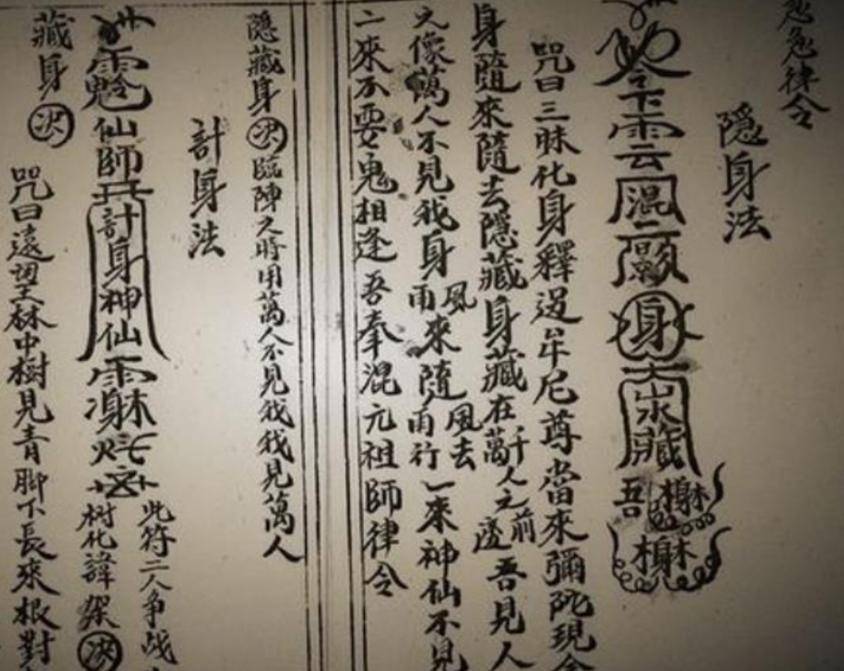 急急律令
隱身法
雲混二影身大山水藏吾
咒曰三昧化身釋迦牟尼尊當來彌陀現金
身隨來隨去隱藏身藏在千萬人之前邊吾見人
之像萬人不見我身風雨來隨風雨去行一來神仙不見
二來不要鬼相逢吾奉混元祖師律令
隱藏身決臨陣之時用萬人不見我我見萬人
計身法
仙師計身神仙
此符二人争战
树化諱架決
藏身決
咒曰遠望林中樹見青腳下長來根對